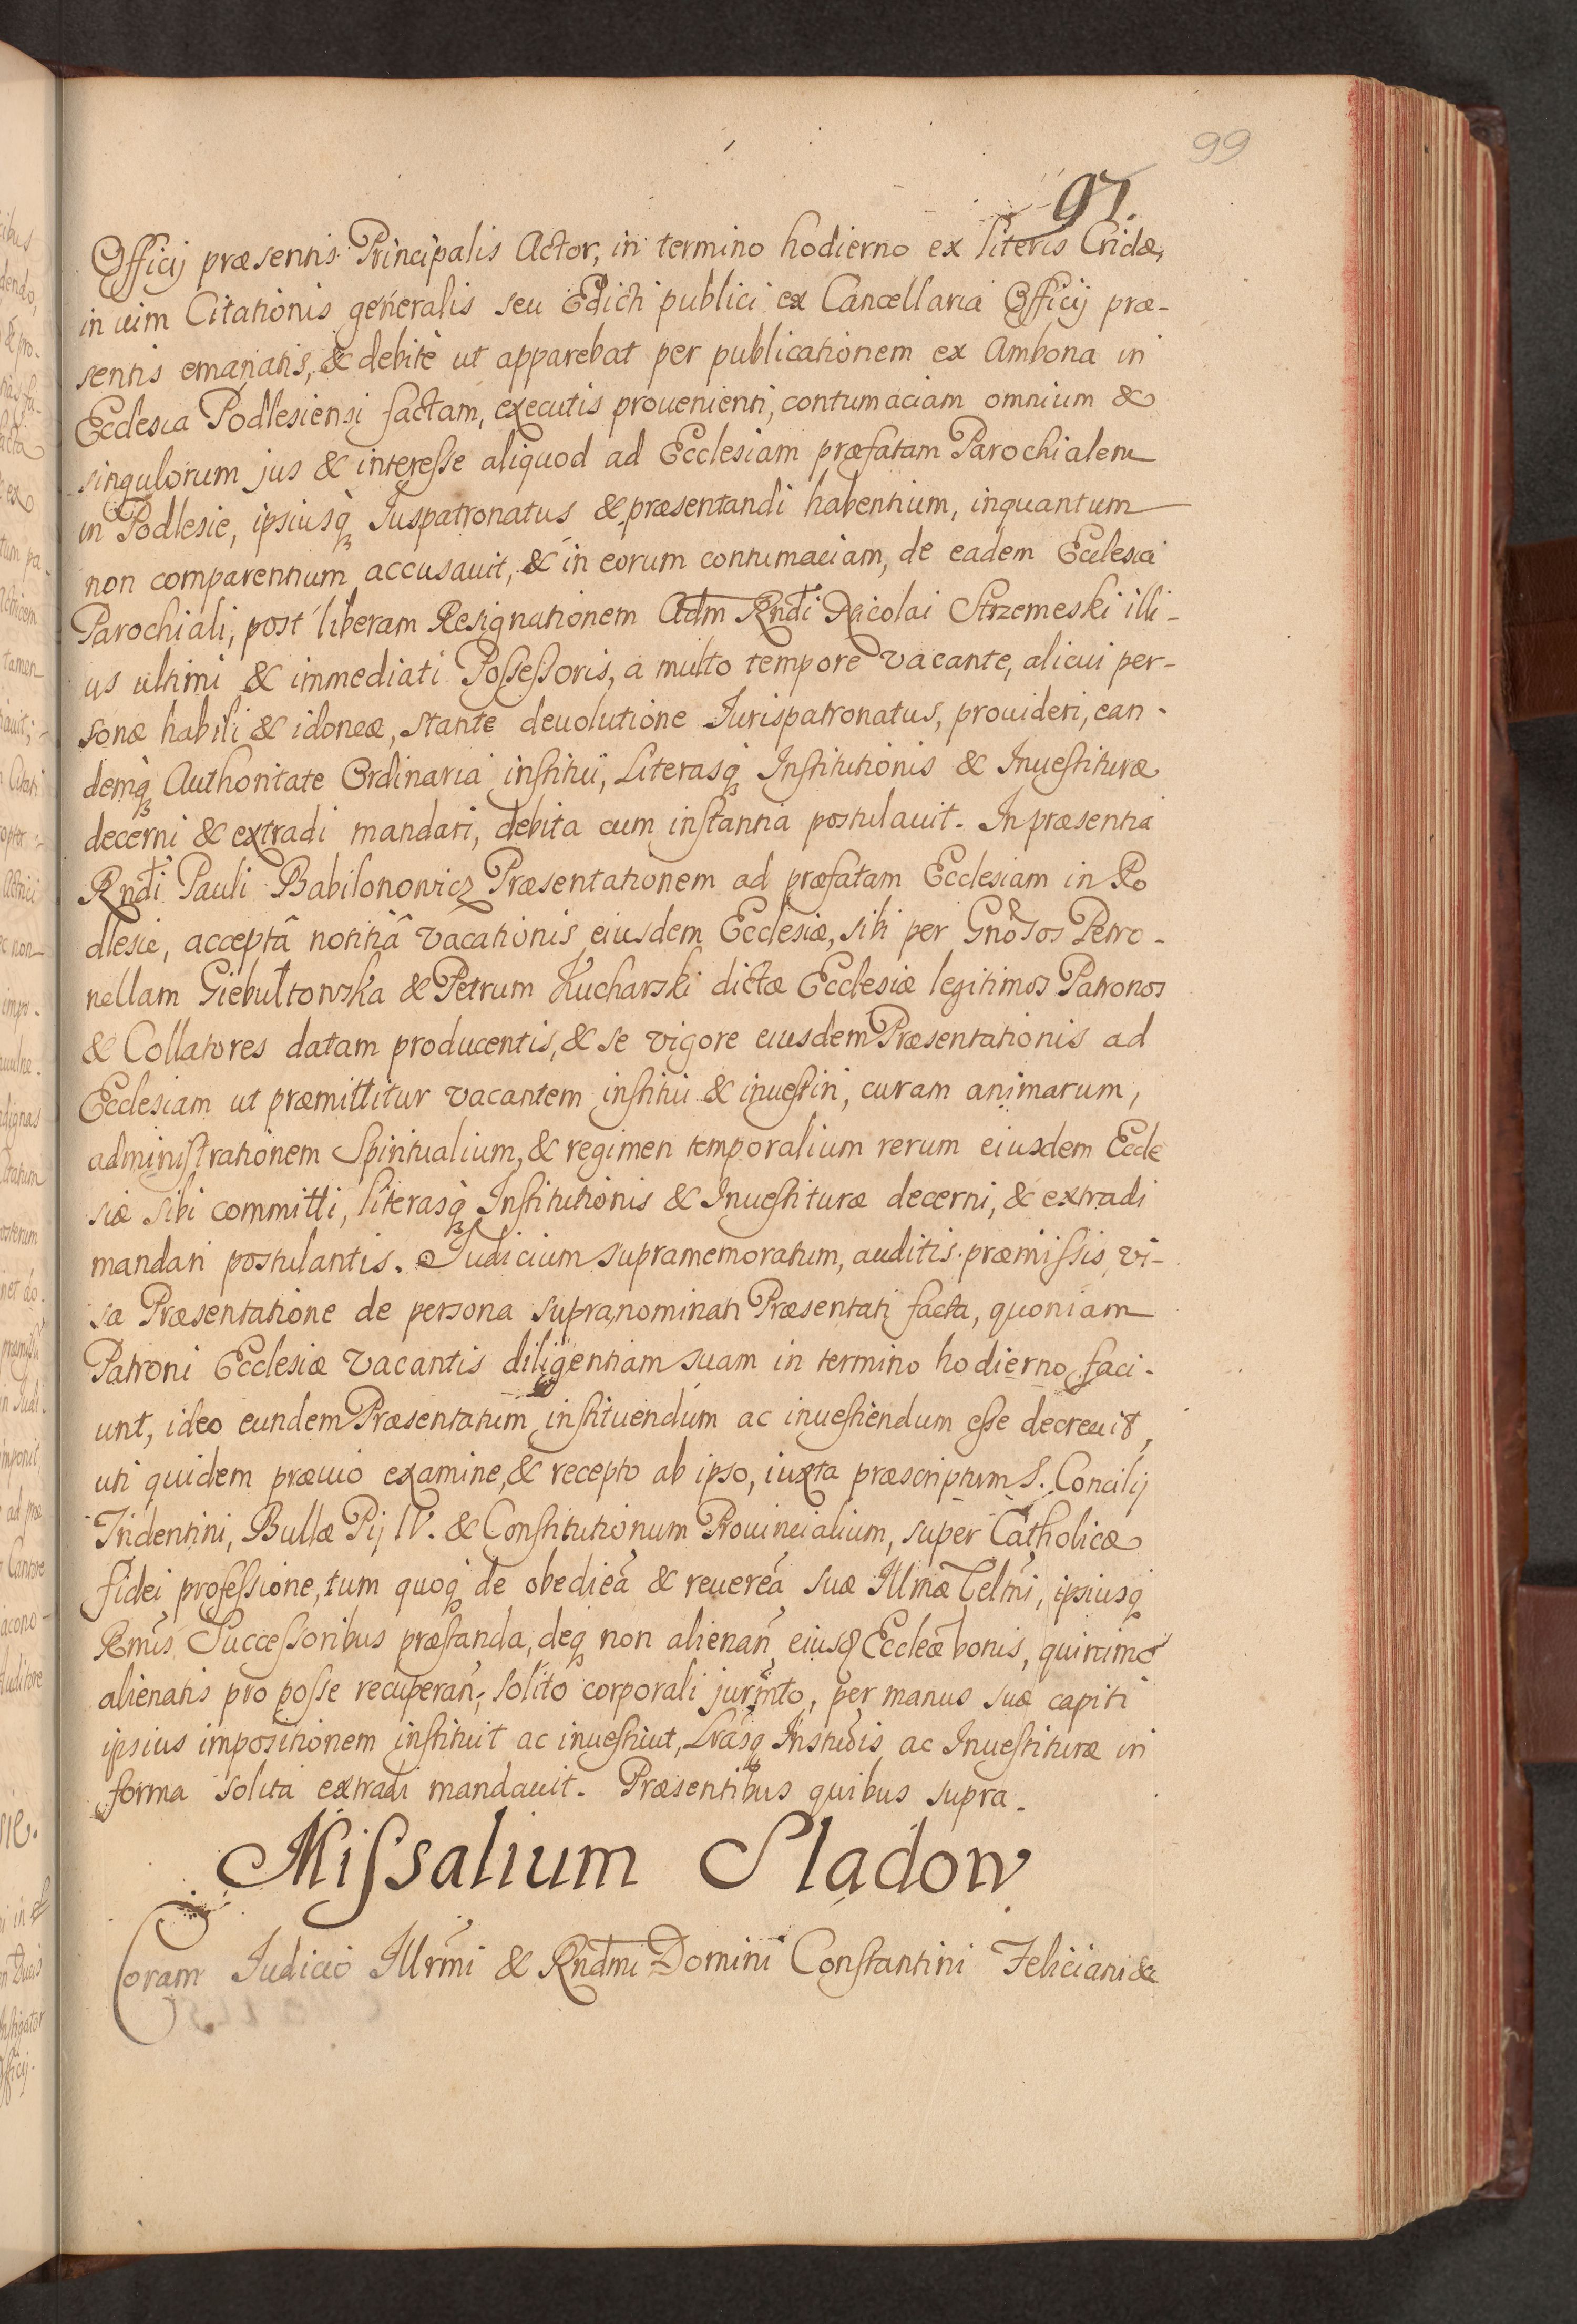 99
97.
Officij præsentis Principalis Actor, in termino hodierno ex literis Cridæ,
in uim Citationis generalis seu Edicti publici ex Cancellaria Officij præ-
sentis emanatis, & debitè ut apparebat per publicationem ex Ambona in
Ecclesia Podlesiensi factam, executis prouenienti, contumaciam omnium &
singulorum jus & interesse aliquod ad Ecclesiam præfatam Parochialem
in Podlesie, ipsiusq Juspatronatus & præsentandi habentium, inquantum
non comparentium accusauit, & in eorum contumaciam, de eadem Ecclesia
Parochiali, post liberam Resignationem Adm Rndi Nicolai Strzemeski illi-
us ultimi & immediati Possessoris, a multo tempore vacante, alicui per-
sonæ habili & idoneæ, stante deuolutione Iurispatronatus, prouideri, ean-
demq Authoritate Ordinaria institui, Literasq Institutionis & Inuestituræ
decerni & extradi mandari, debita cum instantia postulauit. In præsentia
Rndi Pauli Babilonowicz Præsentationem ad præfatam Ecclesiam in Po
dlesie, acceptâ notitiâ vacationis eiusdem Ecclesiæ, sibi per Gnosos Petro-
nellam Giebułtowska & Petrum Kucharski dictæ Ecclesiæ legitimos Patronos
& Collatores datam producentis, & se vigore eiusdem Præsentationis ad
Ecclesiam ut præmittitur vacantem institui & inuestiri, curam animarum,
administrationem Spiritualium, & regimen temporalium rerum eiusdem Eccle
siæ sibi committi, literasq Institutionis & Inuestituræ decerni, & extradi
mandari postulantis. Judicium supramemoratum, auditis præmissis, vi-
sa Præsentatione de persona supranominati Præsentati facta, quoniam
Patroni Ecclesiæ vacantis diligentiam suam in termino hodierno faci-
unt, ideo eundem Præsentatum instituendum ac inuestiendum esse decreuit,
uti quidem præuio examine, & recepto ab ipso, iuxta præscriptum S. Concilij
Tridentini, Bullæ Pij IV. & Constitutionum Prouincialium, super Catholicæ
fidei professione, tum quoq de obediẽa & reuerẽa suæ Illmæ Celmi, ipsiusq
Rmis Successoribus præstanda, deq non alienañ eiusd Eccleæ bonis, quinimo
alienatis pro posse recuperañ, solito corporali jurmto, per manus suæ capiti
ipsius impositionem instituit ac inuestiuit, Lrasq Instuõis ac Inuestituræ in
forma solita extradi mandauit. Præsentibus quibus supra.
Missalium Sladow
Coram Judicio Illrmi & Rndmi Domini Constantini Feliciani &